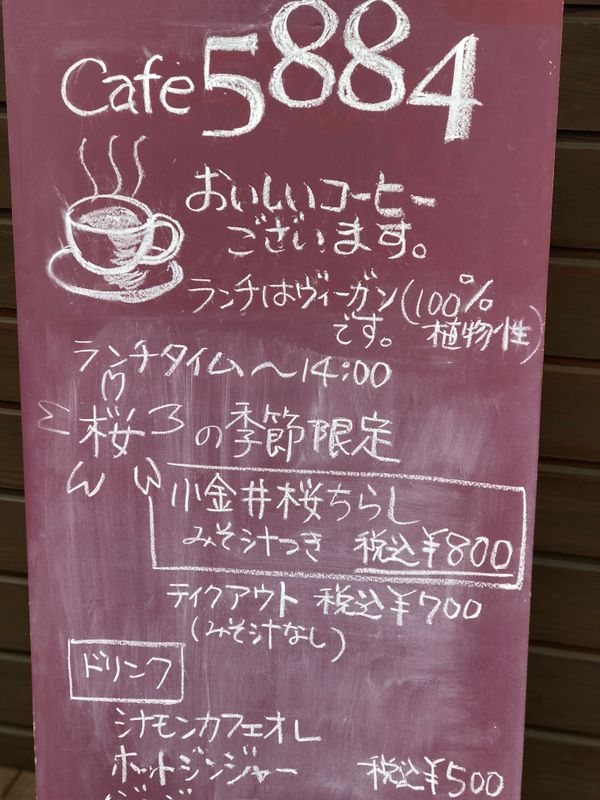 Cafe 5884
おいしいコーヒー
ございます。
ランチはヴィーガン(100%
です。 植物性)
ランチタイム〜14:00
桜の季節限定
小金井桜ちらし
みそ汁つき 税込¥800
テイクアウト 税込¥700
(みそ汁なし)
ドリンク
シナモンカフェオレ
ホットジンジャー 税込¥500